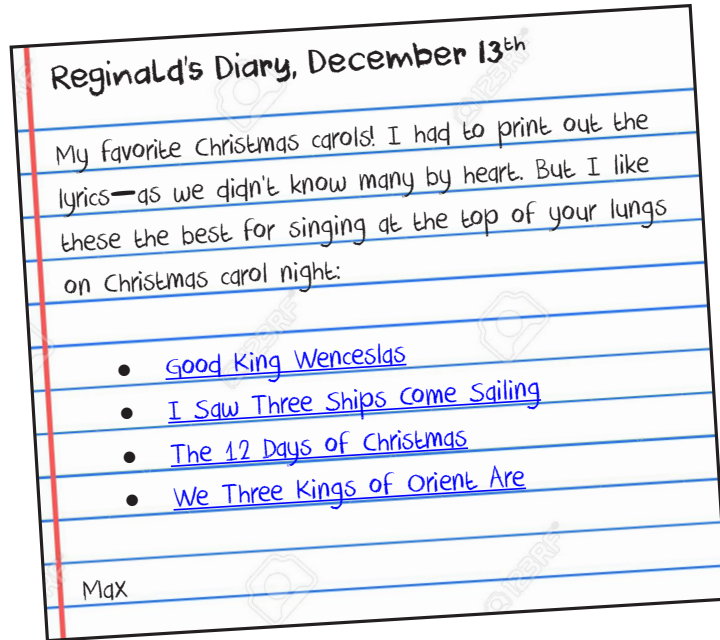 Reginald's Diary, December 13th
My favorite Christmas carols! I had to print out the
lyrics—as we didn't know many by heart. But I like
these the best for singing at the top of your lungs
on Christmas carol night:
• Good King Wenceslas
• I Saw Three Ships Come Sailing
• The 12 Days of Christmas
• We Three Kings of Orient Are
Max
123RF
123RF
123RF